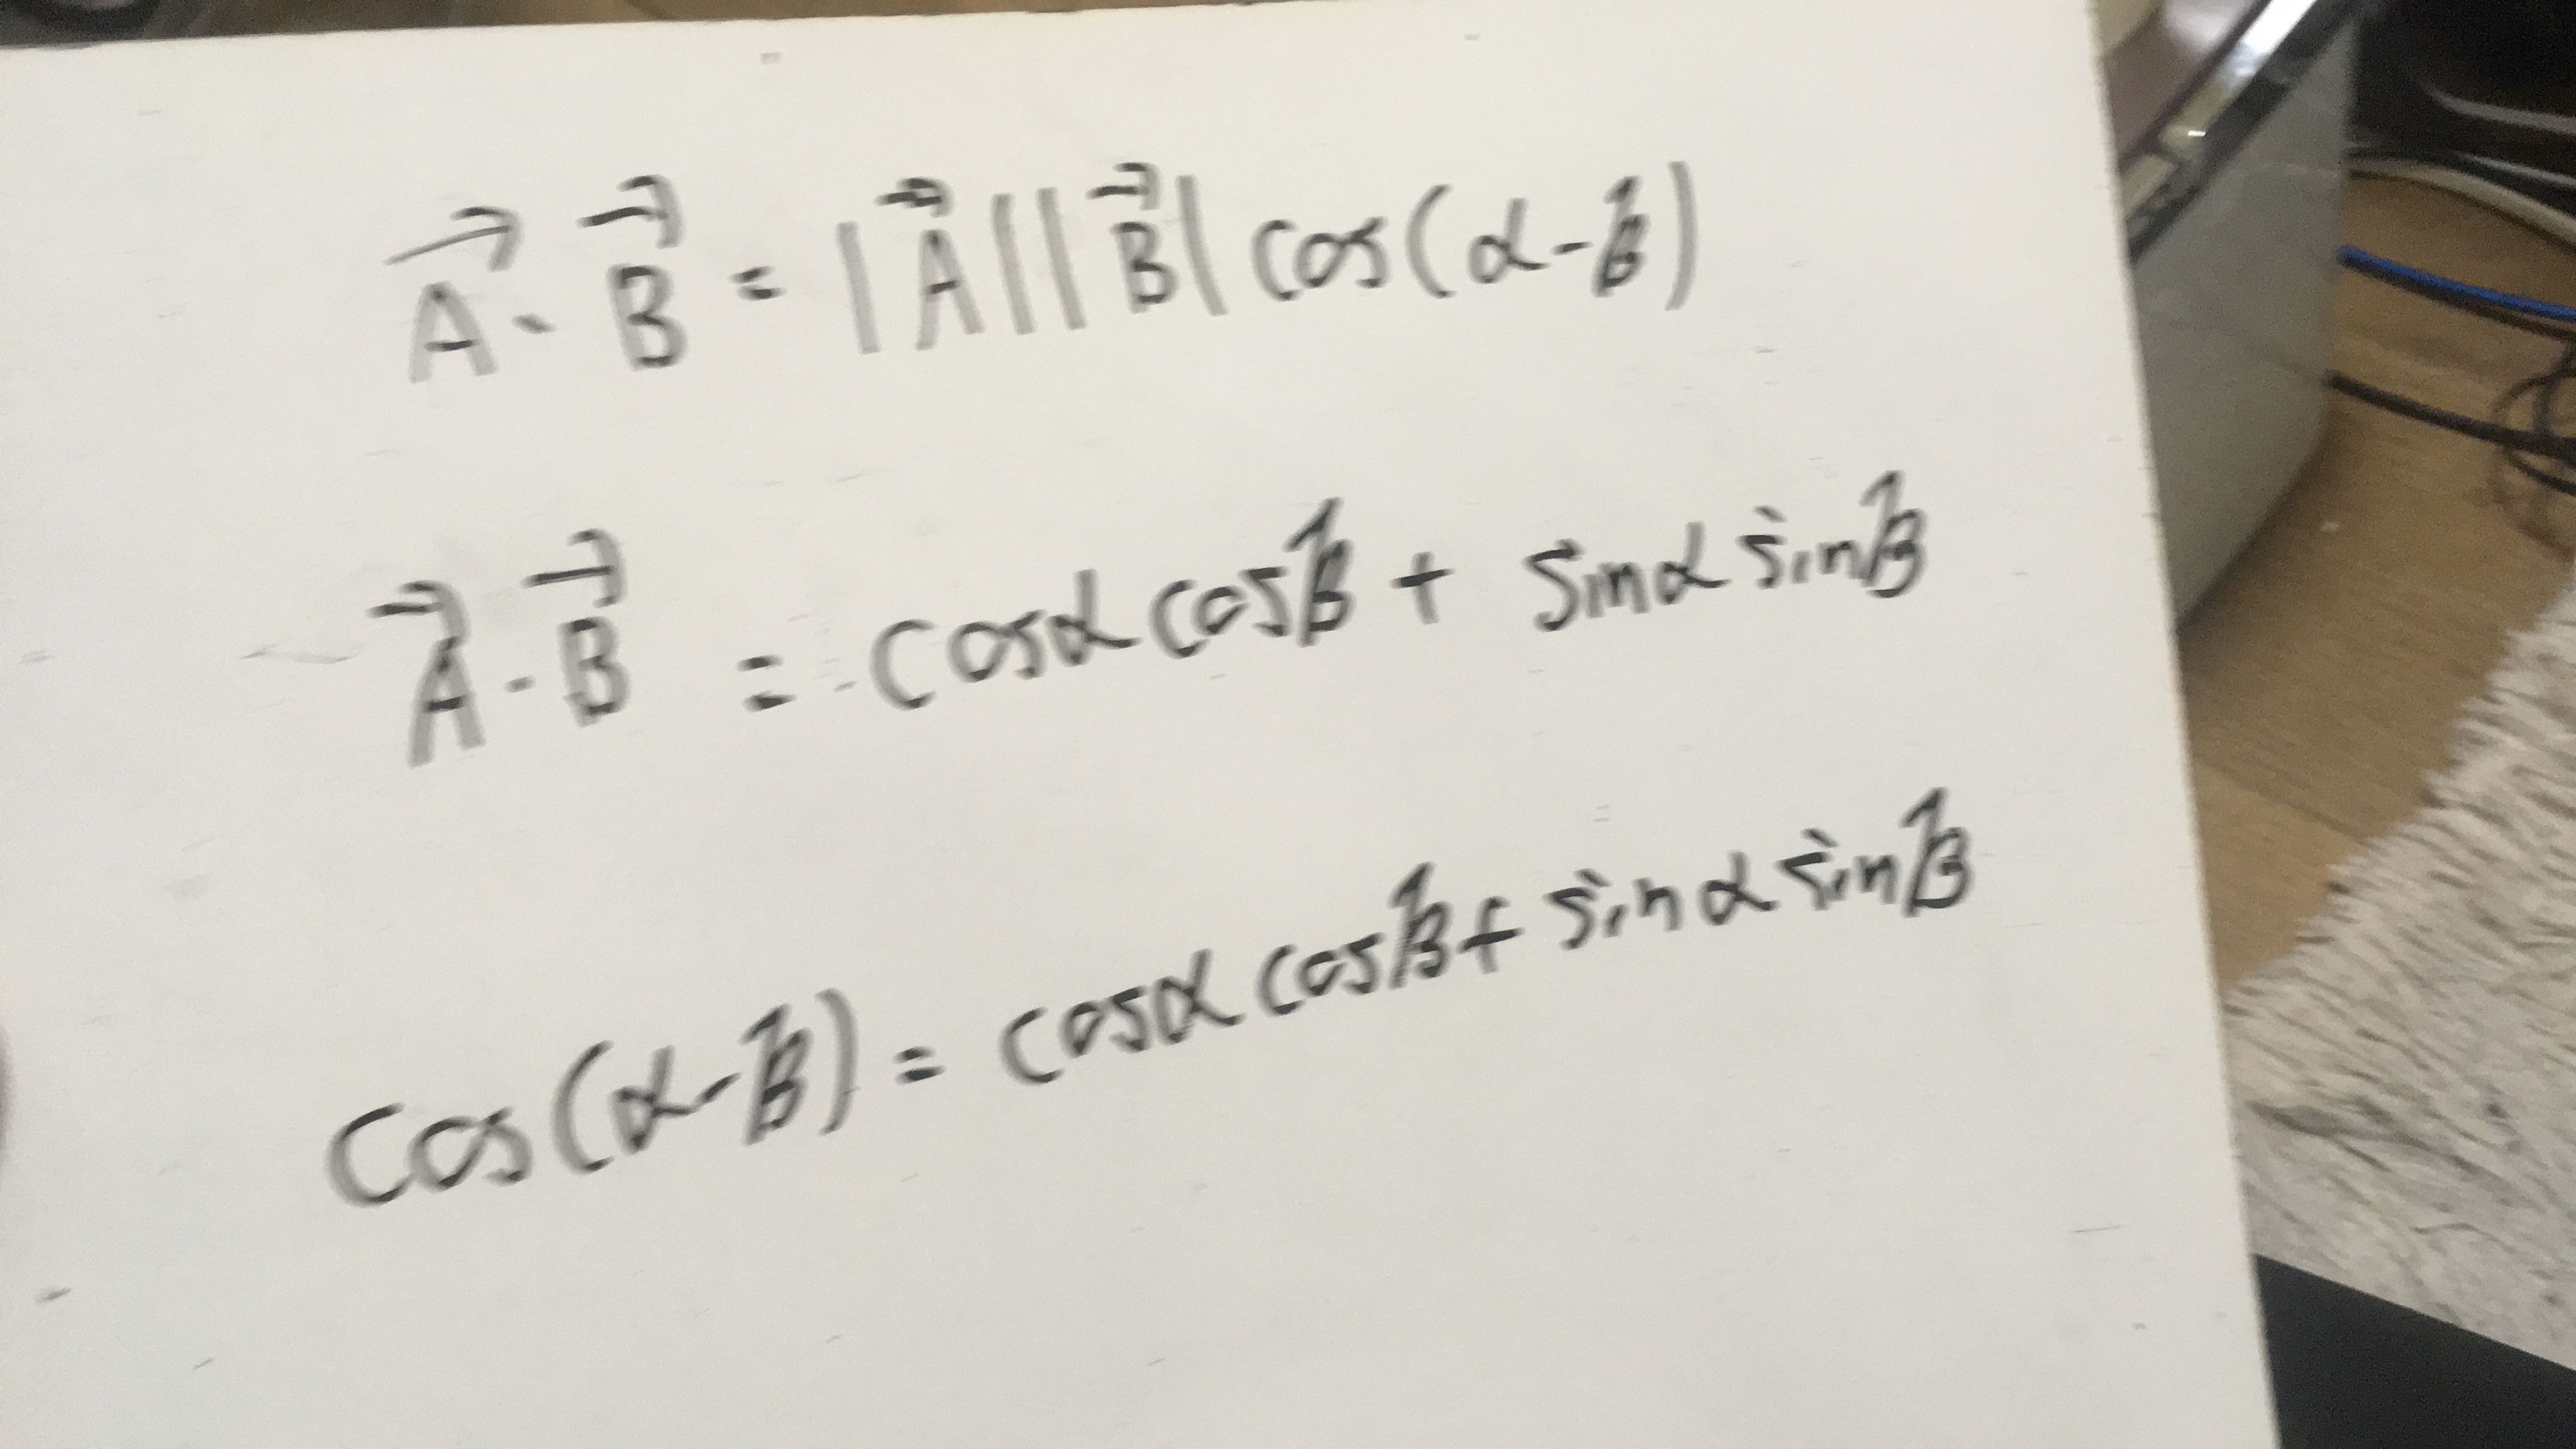 A⃗ · B⃗ = |A⃗||B⃗| cos(α-β)
A⃗ · B⃗ = cosα cosβ + sinα sinβ
cos(α-β) = cosα cosβ + sinα sinβ